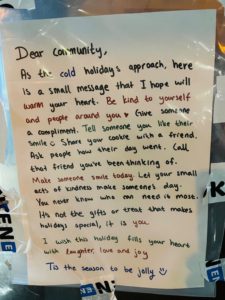 Dear Community,
As the cold holidays approach, here
is a small message that I hope will
warm your heart. Be kind to yourself
and people around you ♥ Give someone
a compliment. Tell someone you like their
smile ☺ Share your cookie with a friend.
Ask people how their day went. Call
that friend you've been thinking of.
Make someone smile today. Let your small
acts of kindness make someone's day.
You never know who can need it most.
It's not the gifts or treat that makes
holidays special, it is you.
I wish this holiday fills your heart
with laughter, love and joy
Tis the season to be jolly ☺